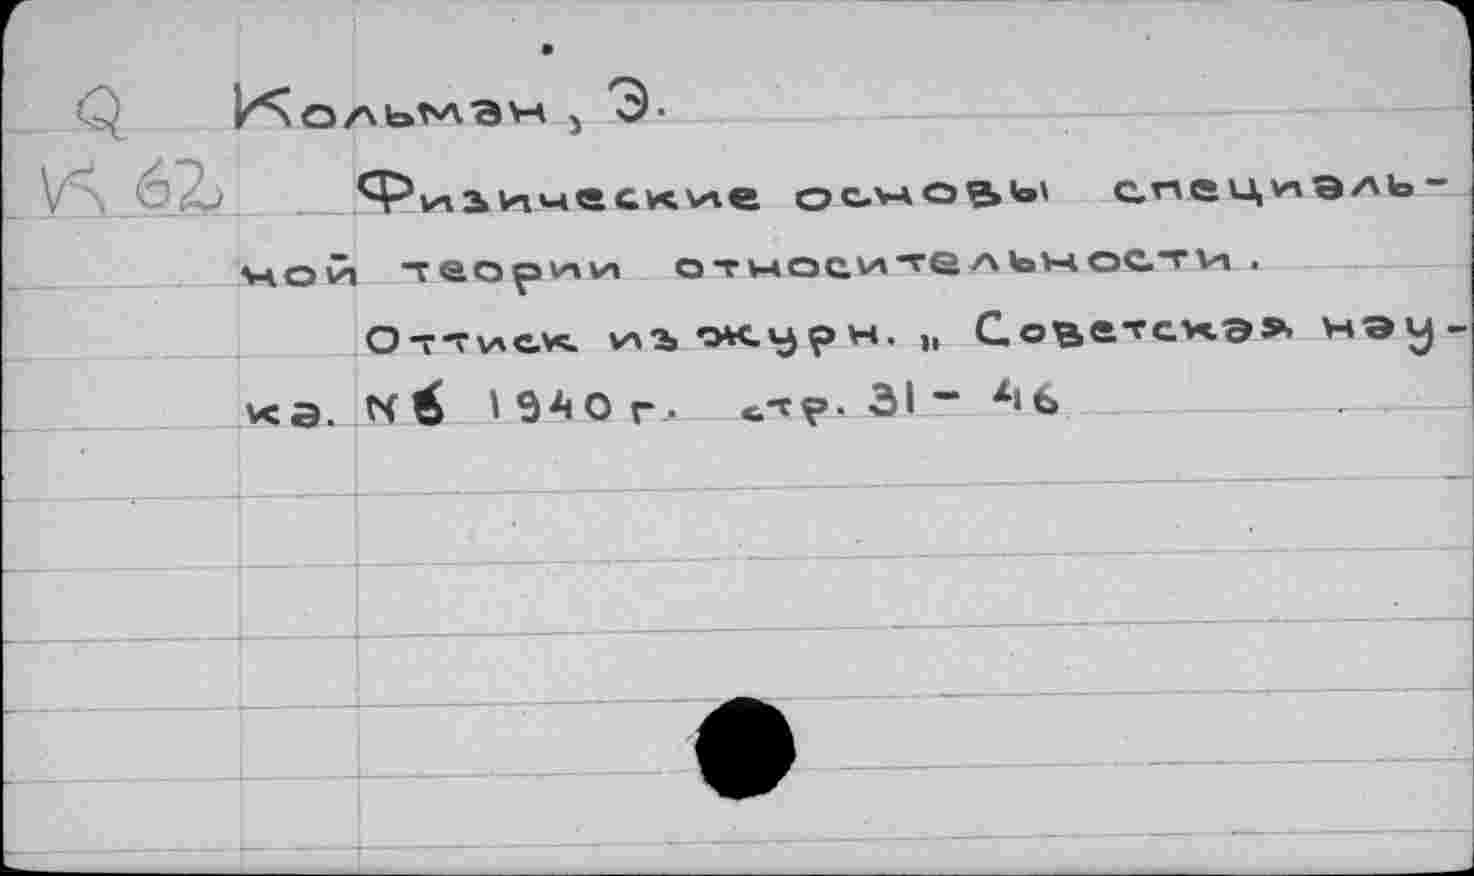 Q Кольман, Э.
К 62 Физические основы специаль-
ной теории относительности.
Оттиск из журн. „ Советская нау-
ка. N6 1940 г. стр. 31 - 46